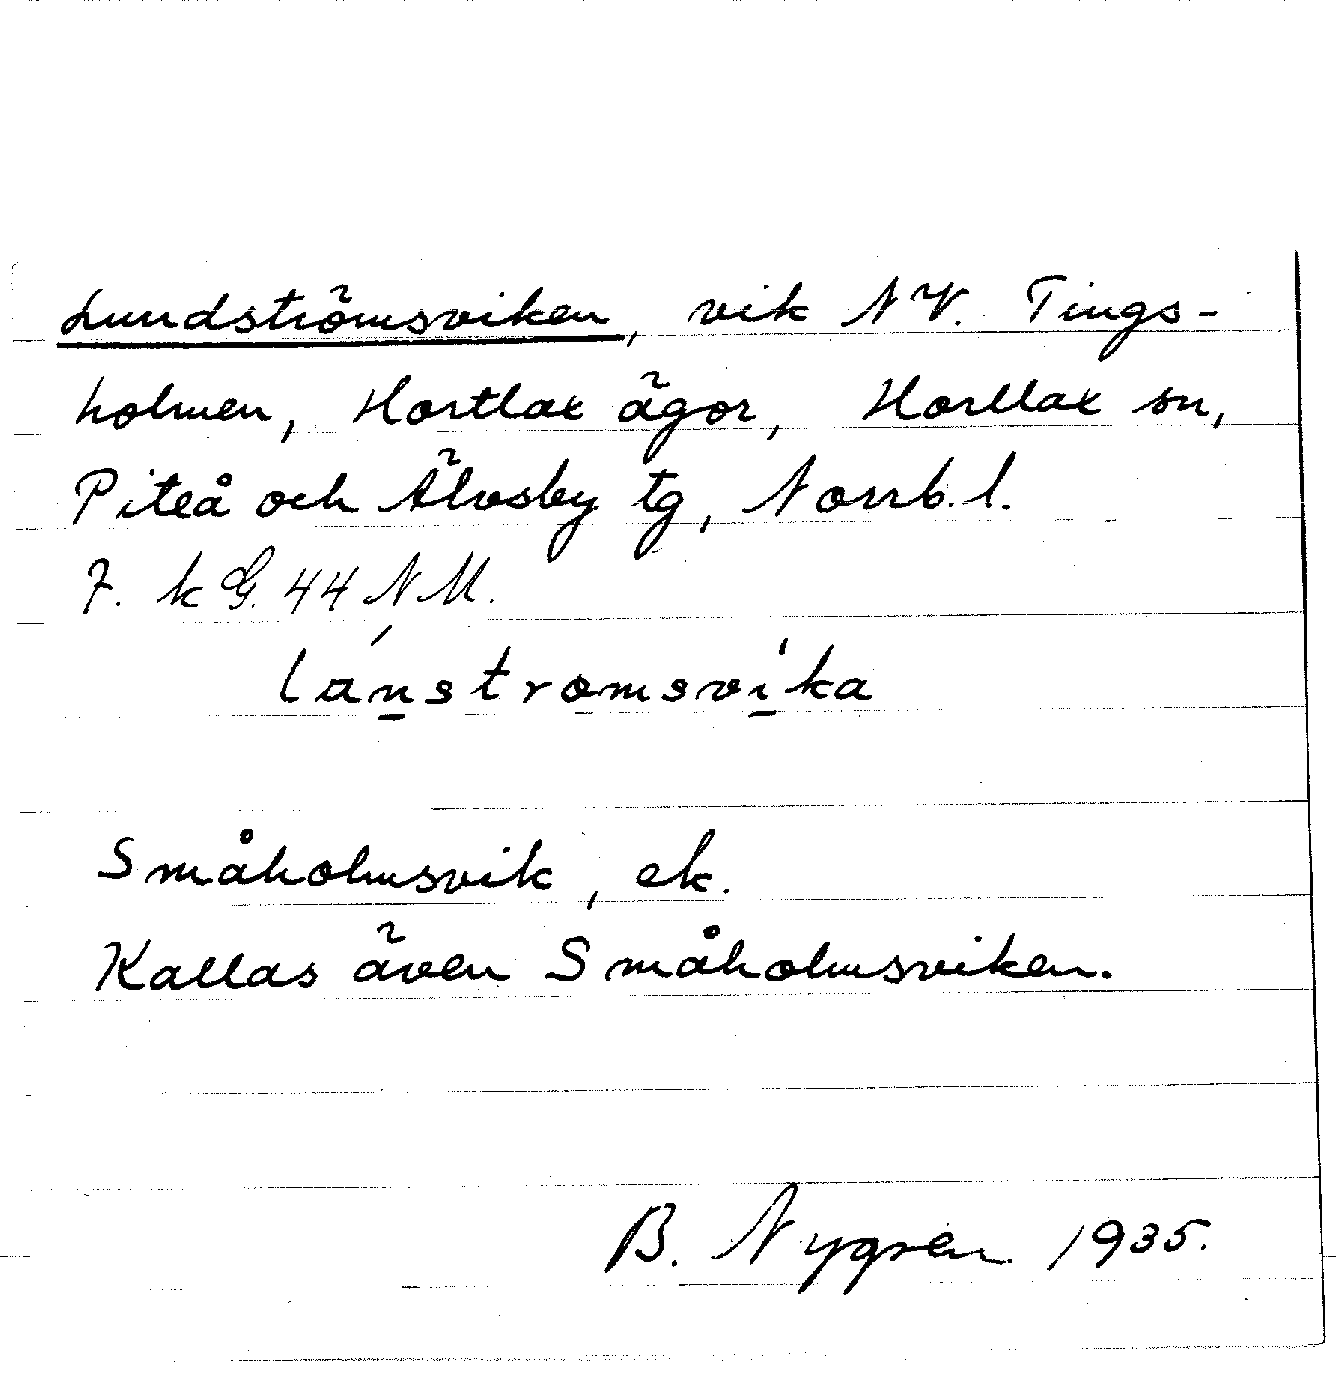 Lundströmsviken, vik NV. Tings-
holmen, Hortlax ägor, Hortlax sn,
Piteå och Älvsby tg, Norrb. l.
7. k G. 44 N M.
lánstromsvi'ka
Småholmsvik, ek.
Kallas även Småholmsviken.
B. Nygren 1935.